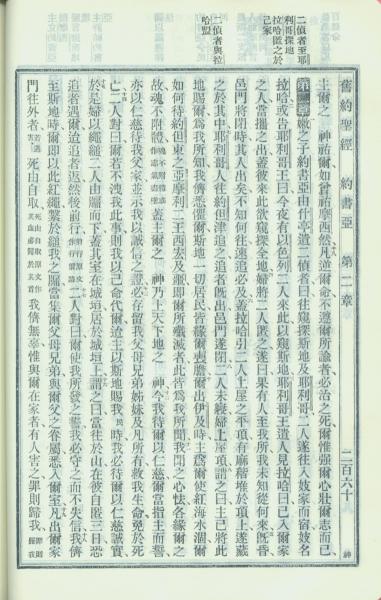 舊約聖經 約書亞 第二章 二百六十
主爾之 神祐爾如曾祐摩西然凡逆爾命不遵爾所諭者必治之死爾惟强爾心壯爾志而已
二偵者至耶
利哥探地
拉哈匿之於
己家
第二章嫩之子約書亞由什亭遣二偵者曰往窺探斯地及耶利哥二人遂往入妓家而宿妓名
拉哈或告耶利哥王曰今夜有以色列二人來此以窺斯地耶利哥王遣人見拉哈曰入爾家
之人當攜之出蓋彼來此欲窺探全地婦將二人匿之遂曰果有人至我所我未知從何來旣昏
邑門將閉時其人出矣不知何往速追必及蓋拉哈引二人上屋之平頂有麻稭堆於頂上遂藏
之於其中耶利哥人往約但津追之追者旣出邑門遂閉二人未寢婦上屋頂謂之曰主已將此
二偵者與拉
哈盟
地賜爾爲我所知我儕悉懼爾斯地一切居民皆緣爾喪膽爾出伊及時主爲爾使紅海水涸爾
如何待約但東之亞摩利二王西宏及噩即爾所殲滅者此皆爲我所聞我聞之心怯各緣爾之
故魂不附體 蓋主爾之 神乃上天下地之 神今我待爾以仁慈爾當指主而誓
亦以仁慈待我父家並示我以誠信之證必存留我父母兄弟姊妹及凡所有救我生命免於死
亡二人對曰爾若不洩我此事則我以己命代爾迨主以斯地賜我民時我必待爾以仁慈誠實
於是婦以繩縋二人由牖而下蓋其室在城垣居於城垣上謂之曰當往於山在彼自匿三日恐
追者遇爾迨追者返然後前行 二人對曰爾使我所發之誓我必守之而不失信我儕
至斯地時爾即以此紅繩繫於縋我之牖當集爾父母兄弟與爾父之眷屬悉入爾室凡出爾家
門往外者若遇死由自取 我儕無辜惟與爾在家者有人害之罪則歸我